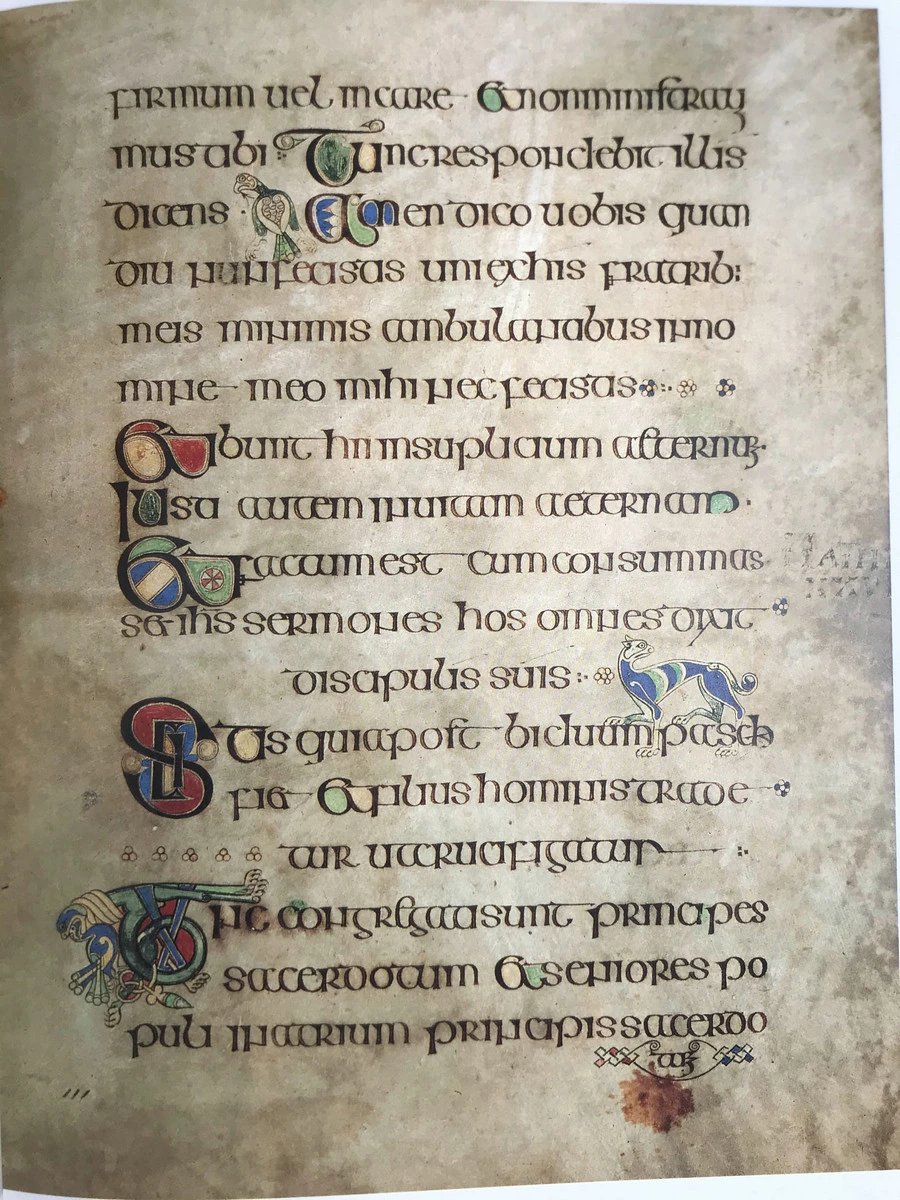 firmum uel in carcere et non ministraui
mus tibi Tunc respondebit illis
dicens Amen dico uobis quam
diu non fecistis uni ex his fratrib:
meis minimis ambulantibus in no
mine meo mihi nec fecistis
Et ibunt hii in suplicium aeternum
Iusti autem in uitam aeternam
Et factum est cum consummas
set ihs sermones hos omnes dixit
discipulis suis
Scitis quia post biduum pascha
fiet Et filius hominis trade
tur ut crucifigatur
Tunc congregati sunt principes
sacerdotum Et seniores po
puli in atrium principis sacerdo
tum